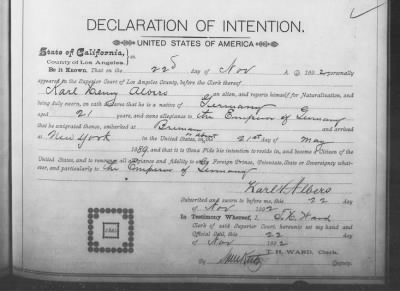 DECLARATION OF INTENTION.
UNITED STATES OF AMERICA
State of California,
County of Los Angeles. } ss.
Be it Known, That on the 22d day of Nov A. D. 1892 personally
appeared in the Superior Court of Los Angeles County, before the Clerk thereof
Karl Henry Albers an alien, and reports himself for Naturalization, and
being duly sworn, on oath declares that he is a native of Germany
aged 21 years, and owes allegiance to the Emperor of Germany
that he emigrated thence, embarked at Bremen and arrived
at New York in the United States, on or about 21st day of May
1889, and that it is Bona Fide his intention to reside in, and become a Citizen of the
United States, and to renounce all allegiance and fidelity to any Foreign Prince, Potentate, State or Sovereignty whatever,
and particularly to the Emperor of Germany
Karl H. Albers
Subscribed and sworn to before me, this 22 day
of Nov 1892
In Testimony Whereof, I T. H. Ward
Clerk of said Superior Court, hereunto set my hand and
Official Seal, this 22 day
of Nov 1892
T. H. WARD, Clerk.
By Deputy.